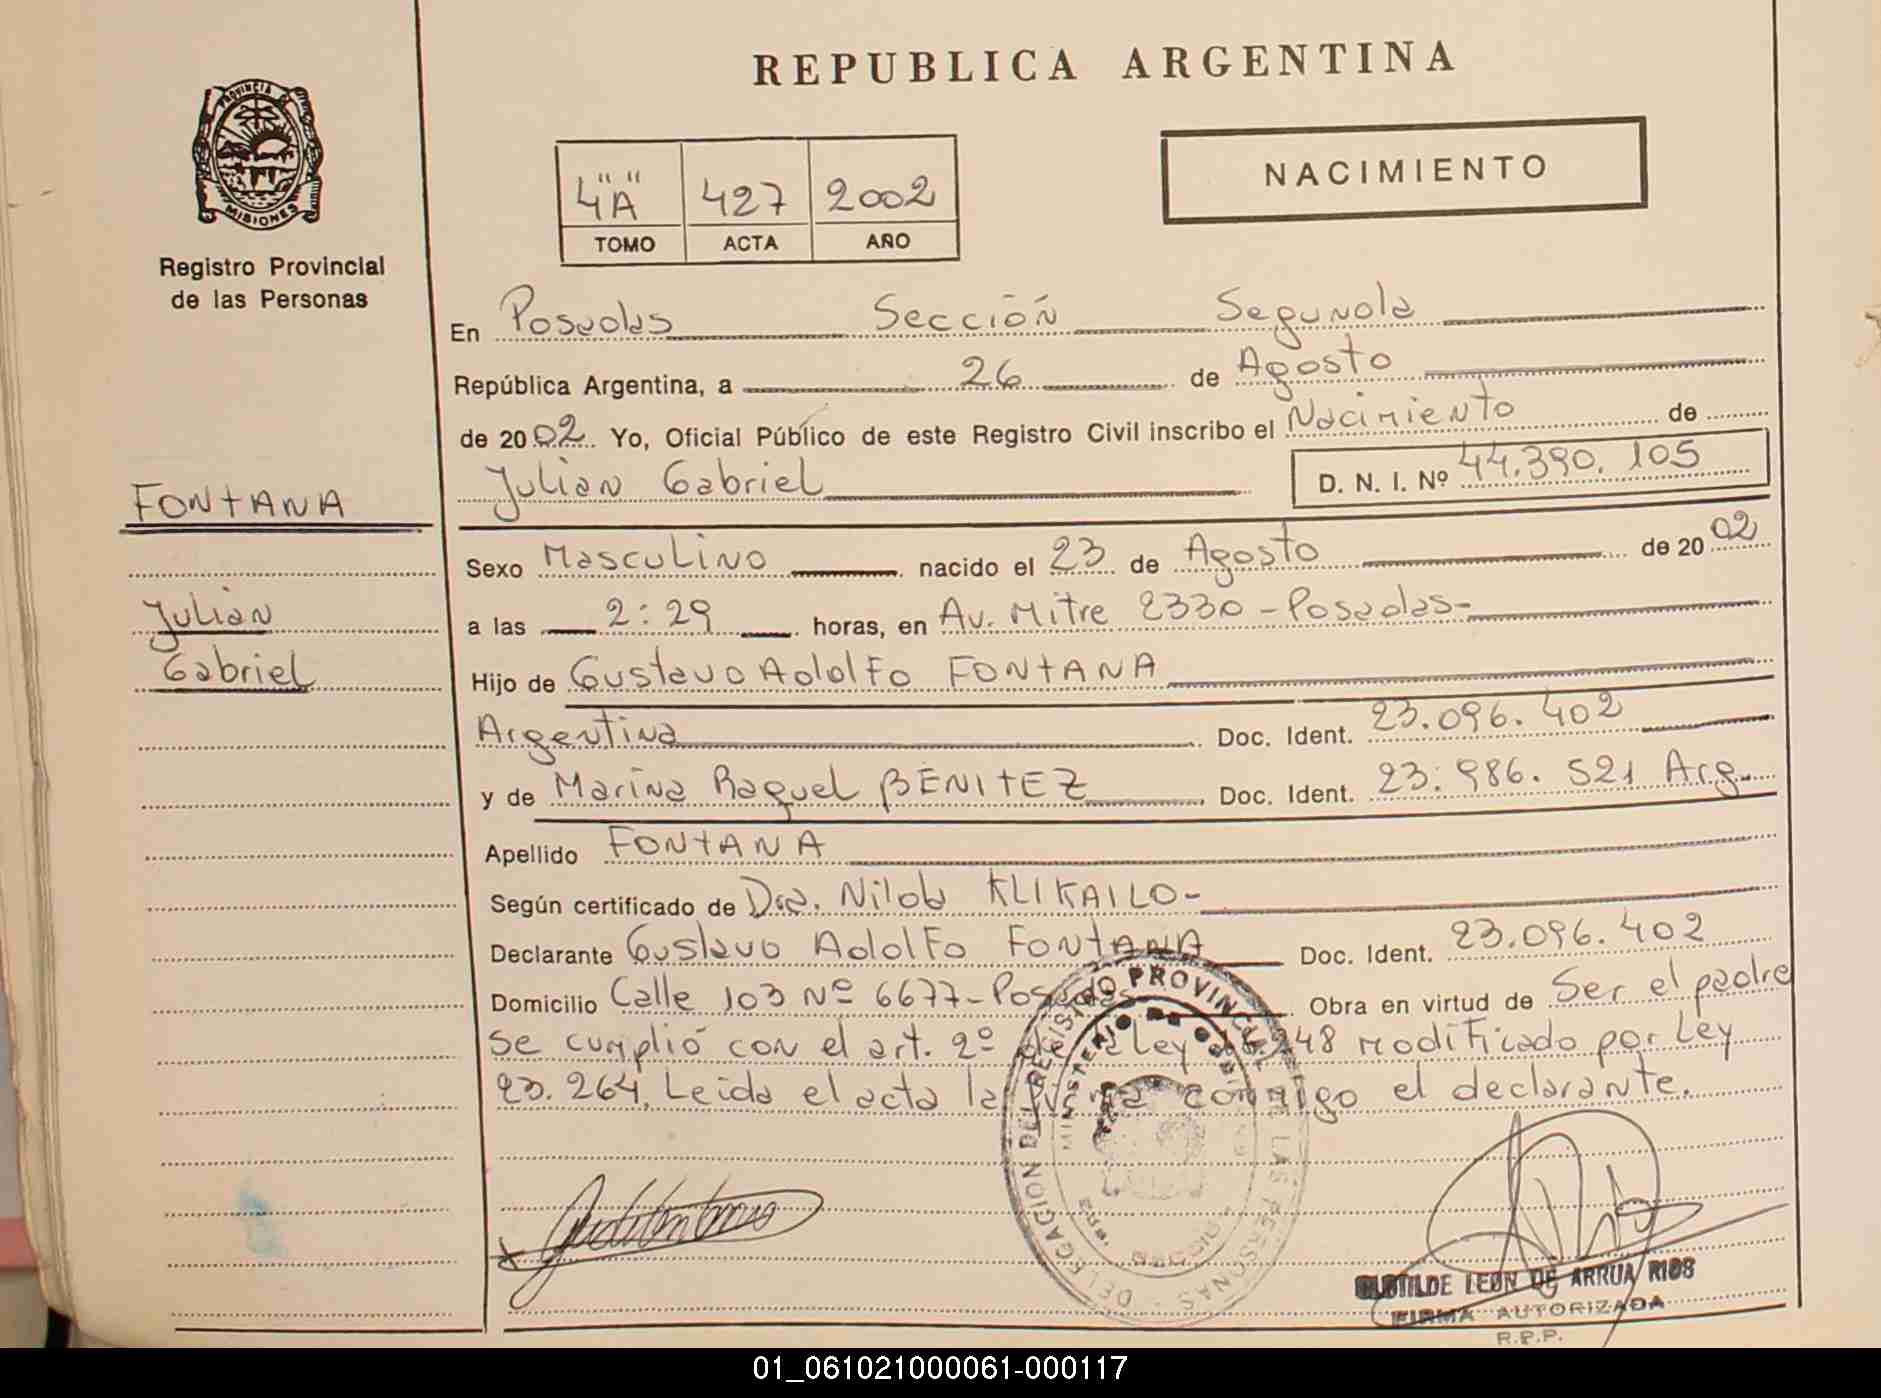 REPUBLICA ARGENTINA
PROVINCIA DE
MISIONES
Registro Provincial
de las Personas
NACIMIENTO
4"A" 427 2002
TOMO ACTA AÑO
En Posadas Sección Segunda
República Argentina, a 26 de Agosto
de 2002 Yo, Oficial Público de este Registro Civil inscribo el Nacimiento de
Julian Gabriel D. N. I. Nº 44.390.105
FONTANA
Julian
Gabriel
Sexo Masculino nacido el 23 de Agosto de 2002
a las 2:29 horas, en Av. Mitre 2330 - Posadas-
Hijo de Gustavo Adolfo FONTANA
Argentina Doc. Ident. 23.096.402
y de Marina Raquel BENITEZ Doc. Ident. 23.986.521 Arg.
Apellido FONTANA
Según certificado de Dra. Nilda KLIKAILO-
Declarante Gustavo Adolfo FONTANA Doc. Ident. 23.096.402
Domicilio Calle 103 Nº 6677-Posadas Obra en virtud de Ser el padre
se cumplió con el art. 2º Ley 48 modificado por Ley
23.264. Leida el acta la firma conmigo el declarante.
DELEGACION DEL REGISTRO PROVINCIAL DE LAS PERSONAS
MINISTERIO DE GOBIERNO
CLOTILDE LEON DE ARRUA RIOS
FIRMA AUTORIZADA
R.P.P.
01_061021000061-000117